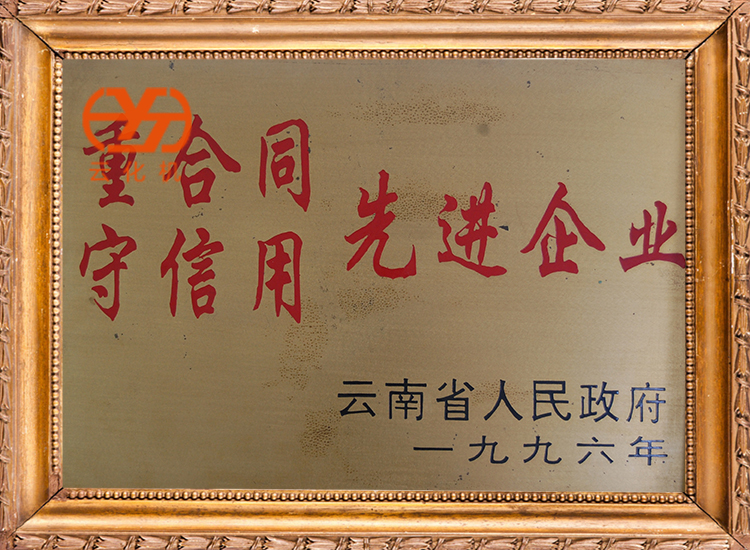 云化机
重合同
守信用
先进企业
云南省人民政府
一九九六年